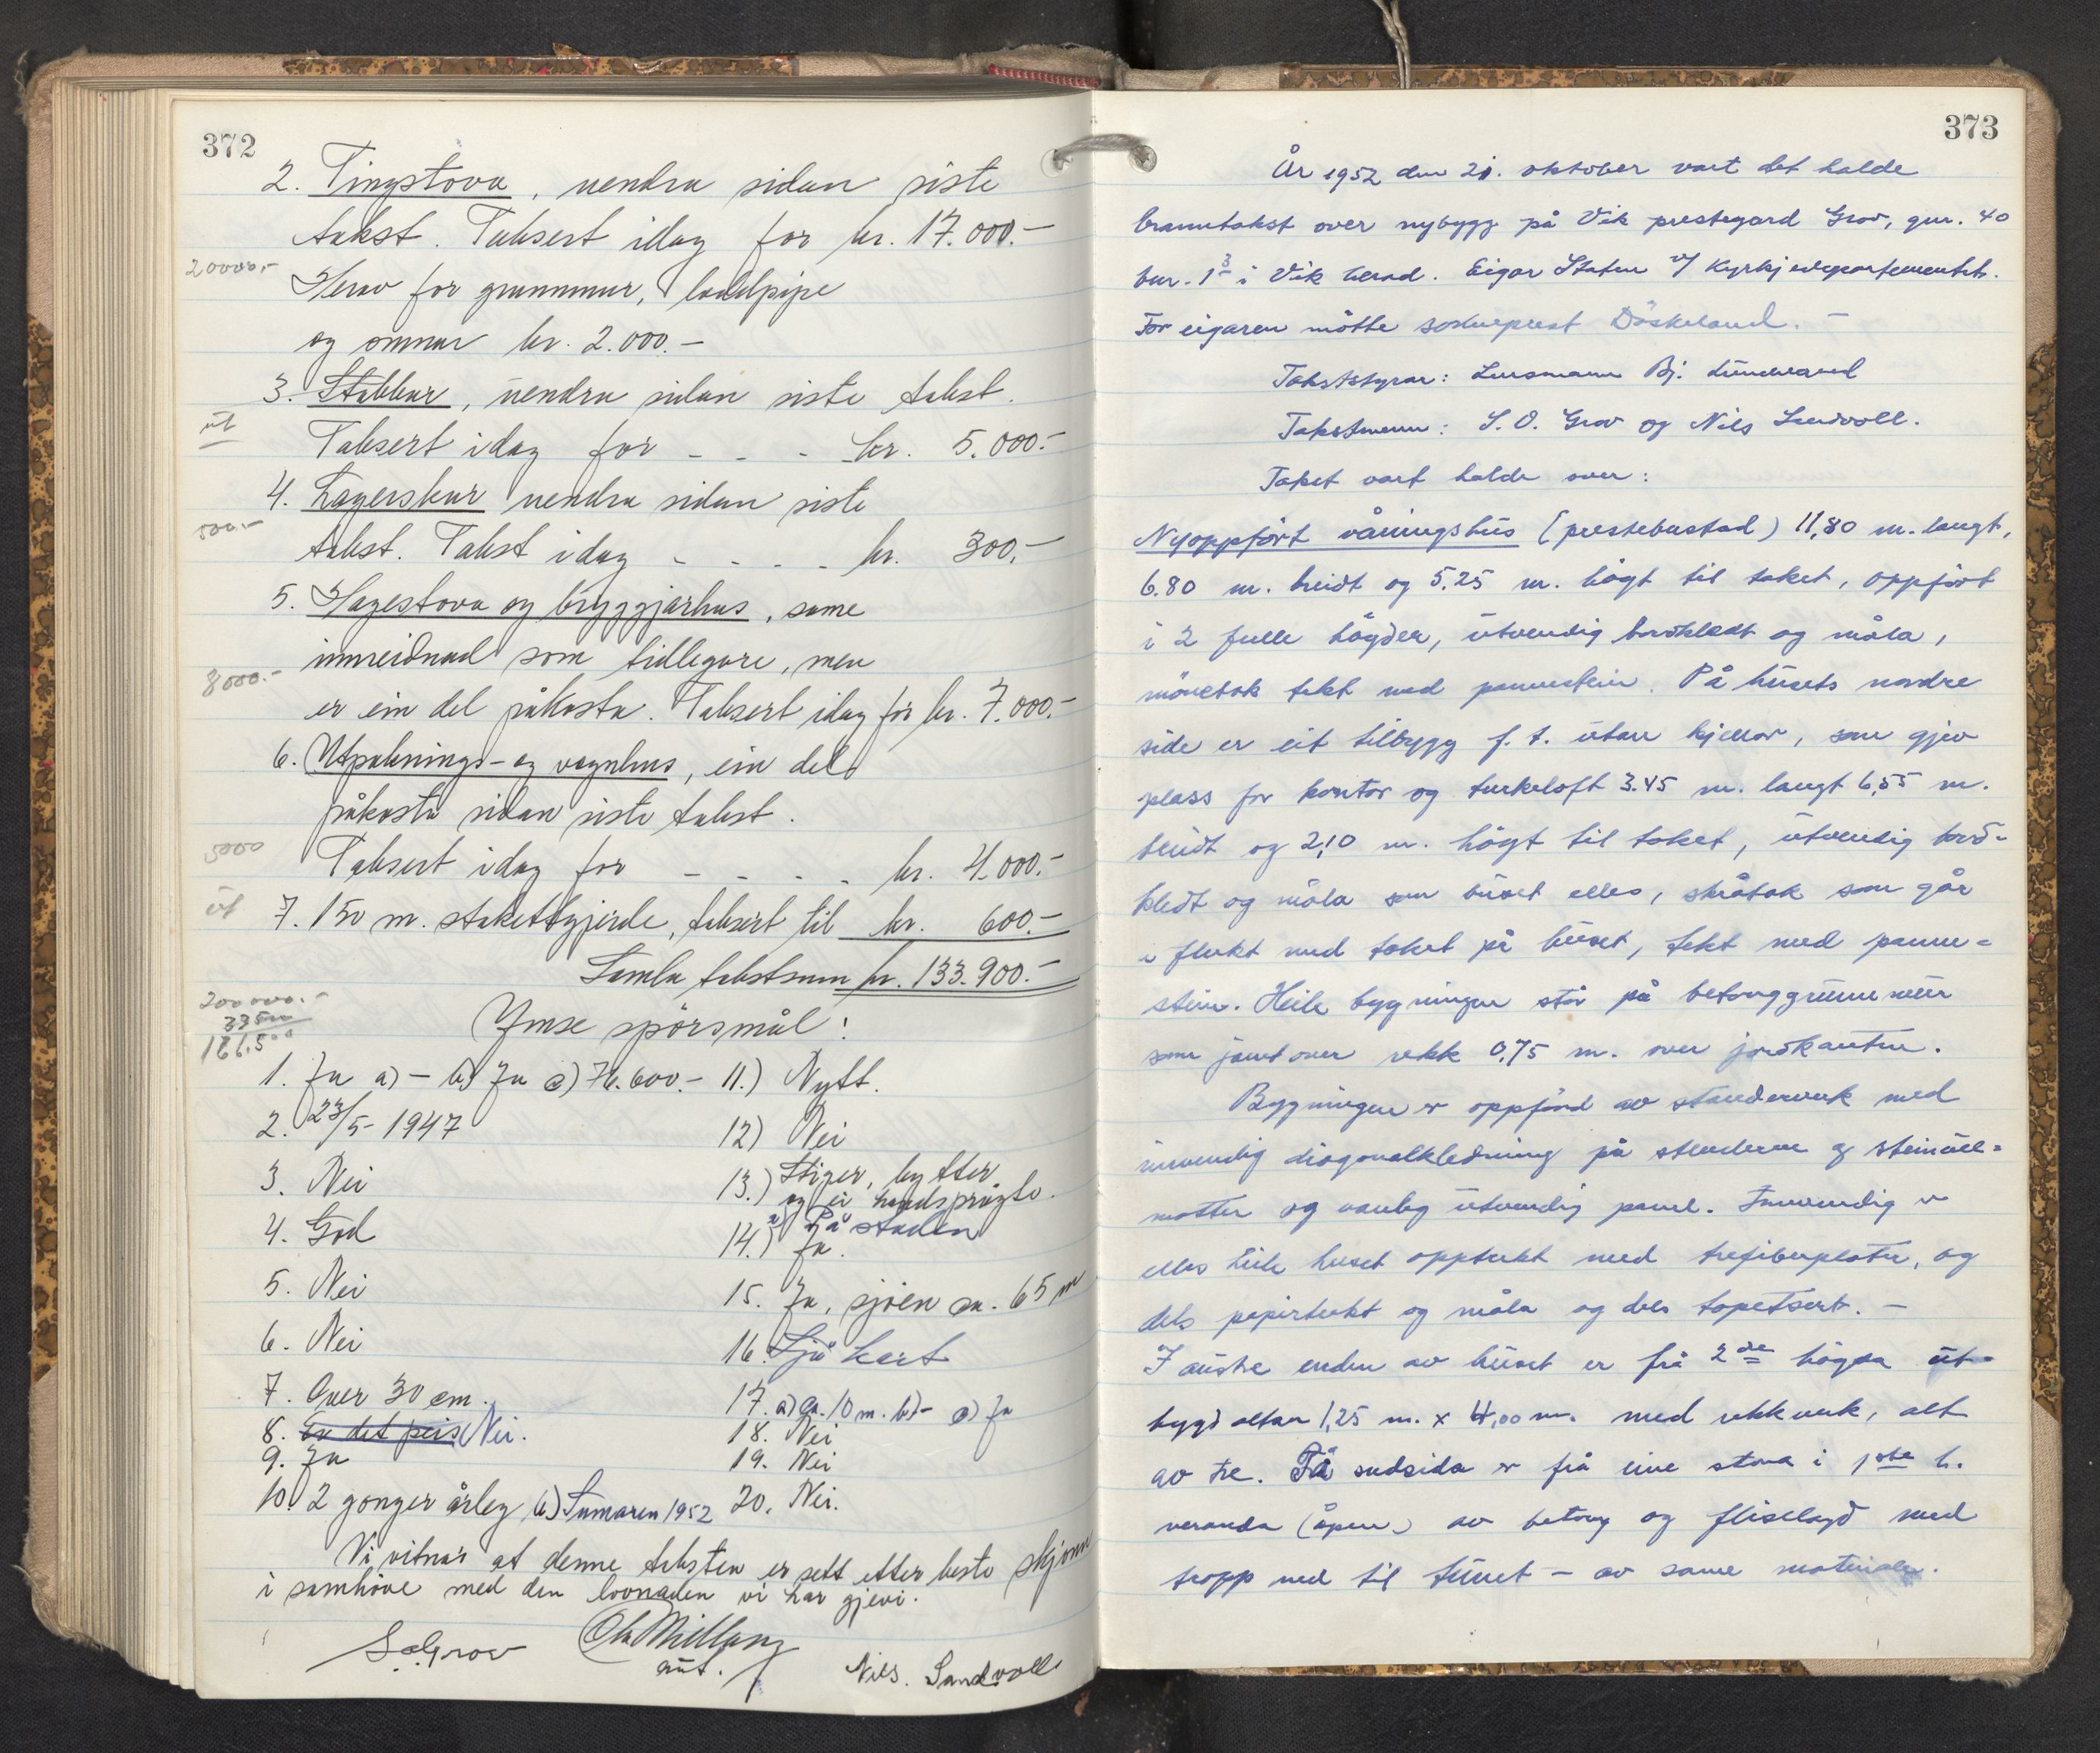 372
2. Tingstova, uendra sidan siste
takst. Taksert idag for kr. 17.000.-
20000.-
Herav for grunnmur, loddpipe
og omnar kr. 2.000.-
3. Stabbur, uendra sidan siste takst.
ut
Taksert idag for - - - kr. 5.000.-
4. Lagerskur uendra sidan siste
500.-
takst. Takst idag - - - - kr. 300.-
5. Hagestova og bryggjarhus, same
innreidnad som tidlegare, men
8000.-
er ein del påkosta. Taksert idag for kr. 7.000.-
6. Utpaknings- og vognhus, ein del
påkosta sidan siste takst.
5000
Taksert idag for - - - - kr. 4.000.-
ut
7. 150 m. stakettgjerde, taksert til kr. 600.-
Samla takstsum kr. 133.900.-
200000.-
33500
166.500
Ymse spörsmål:
1. Ja a) - b) Ja c) 76.600.- 11.) Nytt.
2. 23/5- 1947 12) Nei
3. Nei 13.) Stiger, bytter
og ei handsprøyte.
4. God 14.) a) På staden
Ja.
5. Nei 15. Ja, sjöen ca. 65 m
6. Nei 16. Sjå kart
7. Over 30 cm. 17. a) Ca. 10 m. b) - c) Ja
8. Er det peis Nei. 18. Nei
9. Ja 19. Nei
10. 2 gonger årleg b) Sumaren 1952 20. Nei.
Vi vitnar at denne taksten er sett etter beste skjönn
i samhöve med den lovnaden vi har gjevi.
S.O. Grov Ola Millang Nils. Sandvoll
aut.
373
År 1952 den 21. oktober vart det halde
branntakst over nybygg på Vik prestegard Grov, gnr. 40
bnr. 1 3 i Vik herad. Eigar Staten v/ Kyrkjedepartementet.
For eigaren mötte sokneprest Döskeland. -
Takststyrar: Lensmann Bj. Lundevand
Takstmenn: S. O. Grov og Nils Sandvoll.
Takst vart halde over:
Nyoppfört våningshus (prestebustad) 11,80 m. langt,
6.80 m. breidt og 5.25 m. högt til taket, oppfört
i 2 fulle högder, utvendig bordkledt og måla,
mönetak tekt med pannestein. På husets nordre
side er eit tilbygg f. t. utan kjellar, som gjev
plass for kontor og turkeloft 3.45 m. langt 6,55 m.
breidt og 2,10 m. högt til taket, utvendig bord-
kledt og måla som huset elles, skråtak som går
i flukt med taket på huset, tekt med panne-
stein. Heile bygningen står på betonggrunnmur
som jamt over rekk 0,75 m. over jordkanten.
Bygningen er oppförd av standerverk med
innvendig diagonalkledning på stenderne og steinull-
matter og vanleg utvendig panel. Innvendig er
elles heile huset opptrekt med trefiberplater, og
dels papirtrekt og måla og dels tapetsert. -
I austre enden av huset er frå 2de högda ut-
bygd altan 1,25 m. x 4,00 m. med rekkverk, alt
av tre. På sudsida er frå eine stova i 1ste h.
veranda (åpen) av betong og fliselagd med
tropp ned til tunet - av same materiale.